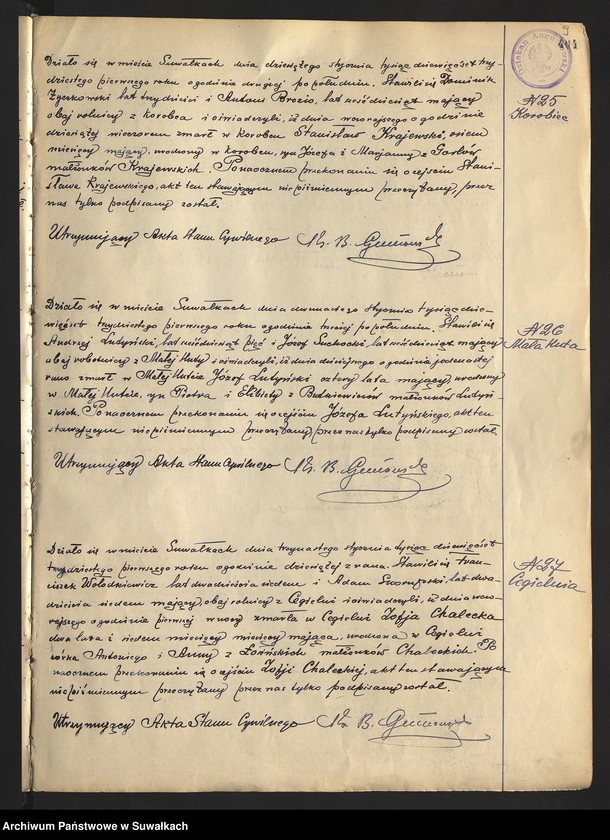 Działo się w mieście Suwałkach dnia dziesiątego stycznia tysiąc dziewięćset trzy-
dziestego pierwszego roku o godzinie drugiej po południu. Stawili się Dominik
Życzkowski lat trzydzieści i Antoni Brozio, lat sześćdziesiąt mający
obaj rolnicy z Korobca i oświadczyli, iż dnia wczorajszego o godzinie
dziesiątej wieczorem zmarł w Korobcu Stanisław Krajewski, osiem
miesięcy mający, urodzony w Korobcu, syn Józefa i Marjanny z
małżonków Krajewskich. Po naocznem przekonaniu się o zejściu Stani-
sława Krajewskiego, akt ten stawającym niepiśmiennym przeczytany, przez
nas tylko podpisany został.
Utrzymujący Akta Stanu Cywilnego Ks. B.
N 25
Korobiec
Działo się w mieście Suwałkach dnia dwunastego stycznia tysiąc dzie-
więćset trzydziestego pierwszego roku o godzinie trzeciej po południu. Stawili się
Andrzej Lutyński, lat sześćdziesiąt pięć i Józef Suchocki, lat sześćdziesiąt mający
obaj robotnicy z Małej Huty i oświadczyli, iż dnia dzisiejszego o godzinie jedenastej
rano zmarł w Małej Hucie Józef Lutyński cztery lata mający, urodzony
w Małej Hucie, syn Piotra i Elżbiety z Butkiewiczów małżonków Lutyń-
skich. Po naocznem przekonaniu się o zejściu Józefa Lutyńskiego, akt ten
stawającym niepiśmiennym przeczytany, przez nas tylko podpisany został.
Utrzymujący Akta Stanu Cywilnego Ks. B.
N 26
Mała Huta
Działo się w mieście Suwałkach dnia trzynastego stycznia tysiąc dziewięćset
trzydziestego pierwszego roku o godzinie dziesiątej z rana. Stawili się Fran-
ciszek Wołodkiewicz lat dwadzieścia siedem i Adam lat dwa-
dzieścia siedem mający, obaj rolnicy z Cegielni i oświadczyli, iż dnia wczo-
rajszego o godzinie pierwszej w nocy zmarła w Cegielni Zofja Chalecka
dwa lata i siedem miesięcy mająca, urodzona w Cegielni
córka Antoniego i Anny z Łosińskich małżonków Chaleckich. Po
naocznem przekonaniu się o zejściu Zofji Chaleckiej, akt ten stawającym
niepiśmiennym przeczytany przez nas tylko podpisany został.
Utrzymujący Akta Stanu Cywilnego Ks. B.
N 27
Cegielnia
Archiwum Państwowe w Suwałkach